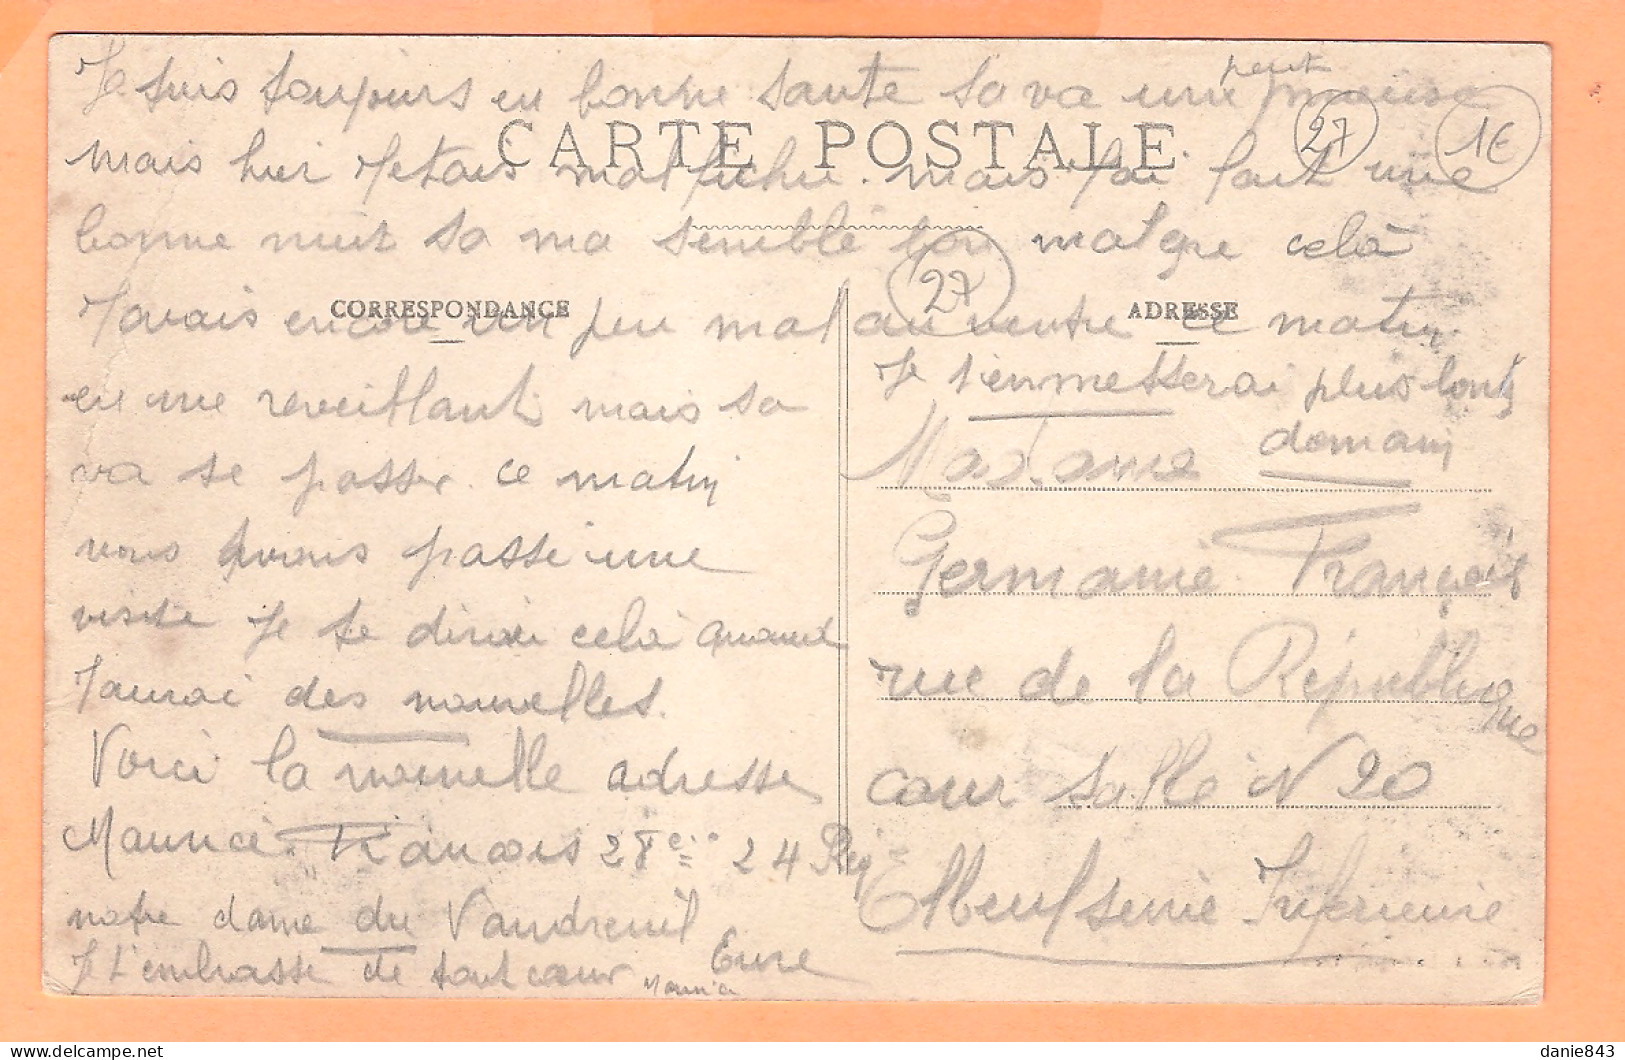 Je suis toujours en bonne sante sa va une peut mause
CARTE POSTALE
27
1€
mais hier Jetais mal fichu. mais Jai fait une
bonne nuit sa ma semble bon malgre celà
27
CORRESPONDANCE
ADRESSE
Javais encore un peu mal au ventre ce matin
en me reveillant mais sa
va se passer. ce matin
nous avons passé une
visite Je te dirai celà quand
Jaurai des nouvelles.
Voici la nouvelle adresse
Maurice François 28e cie 24 Reg
notre dame du Vaudreuil
Eure
Je t'embrasse de tout cœur Maurice
Je t'en metterai plus long
demain
Madame
Germanie François
rue de la République
cour Sallé N 20
Elbeuf seine Inferieure
danie843